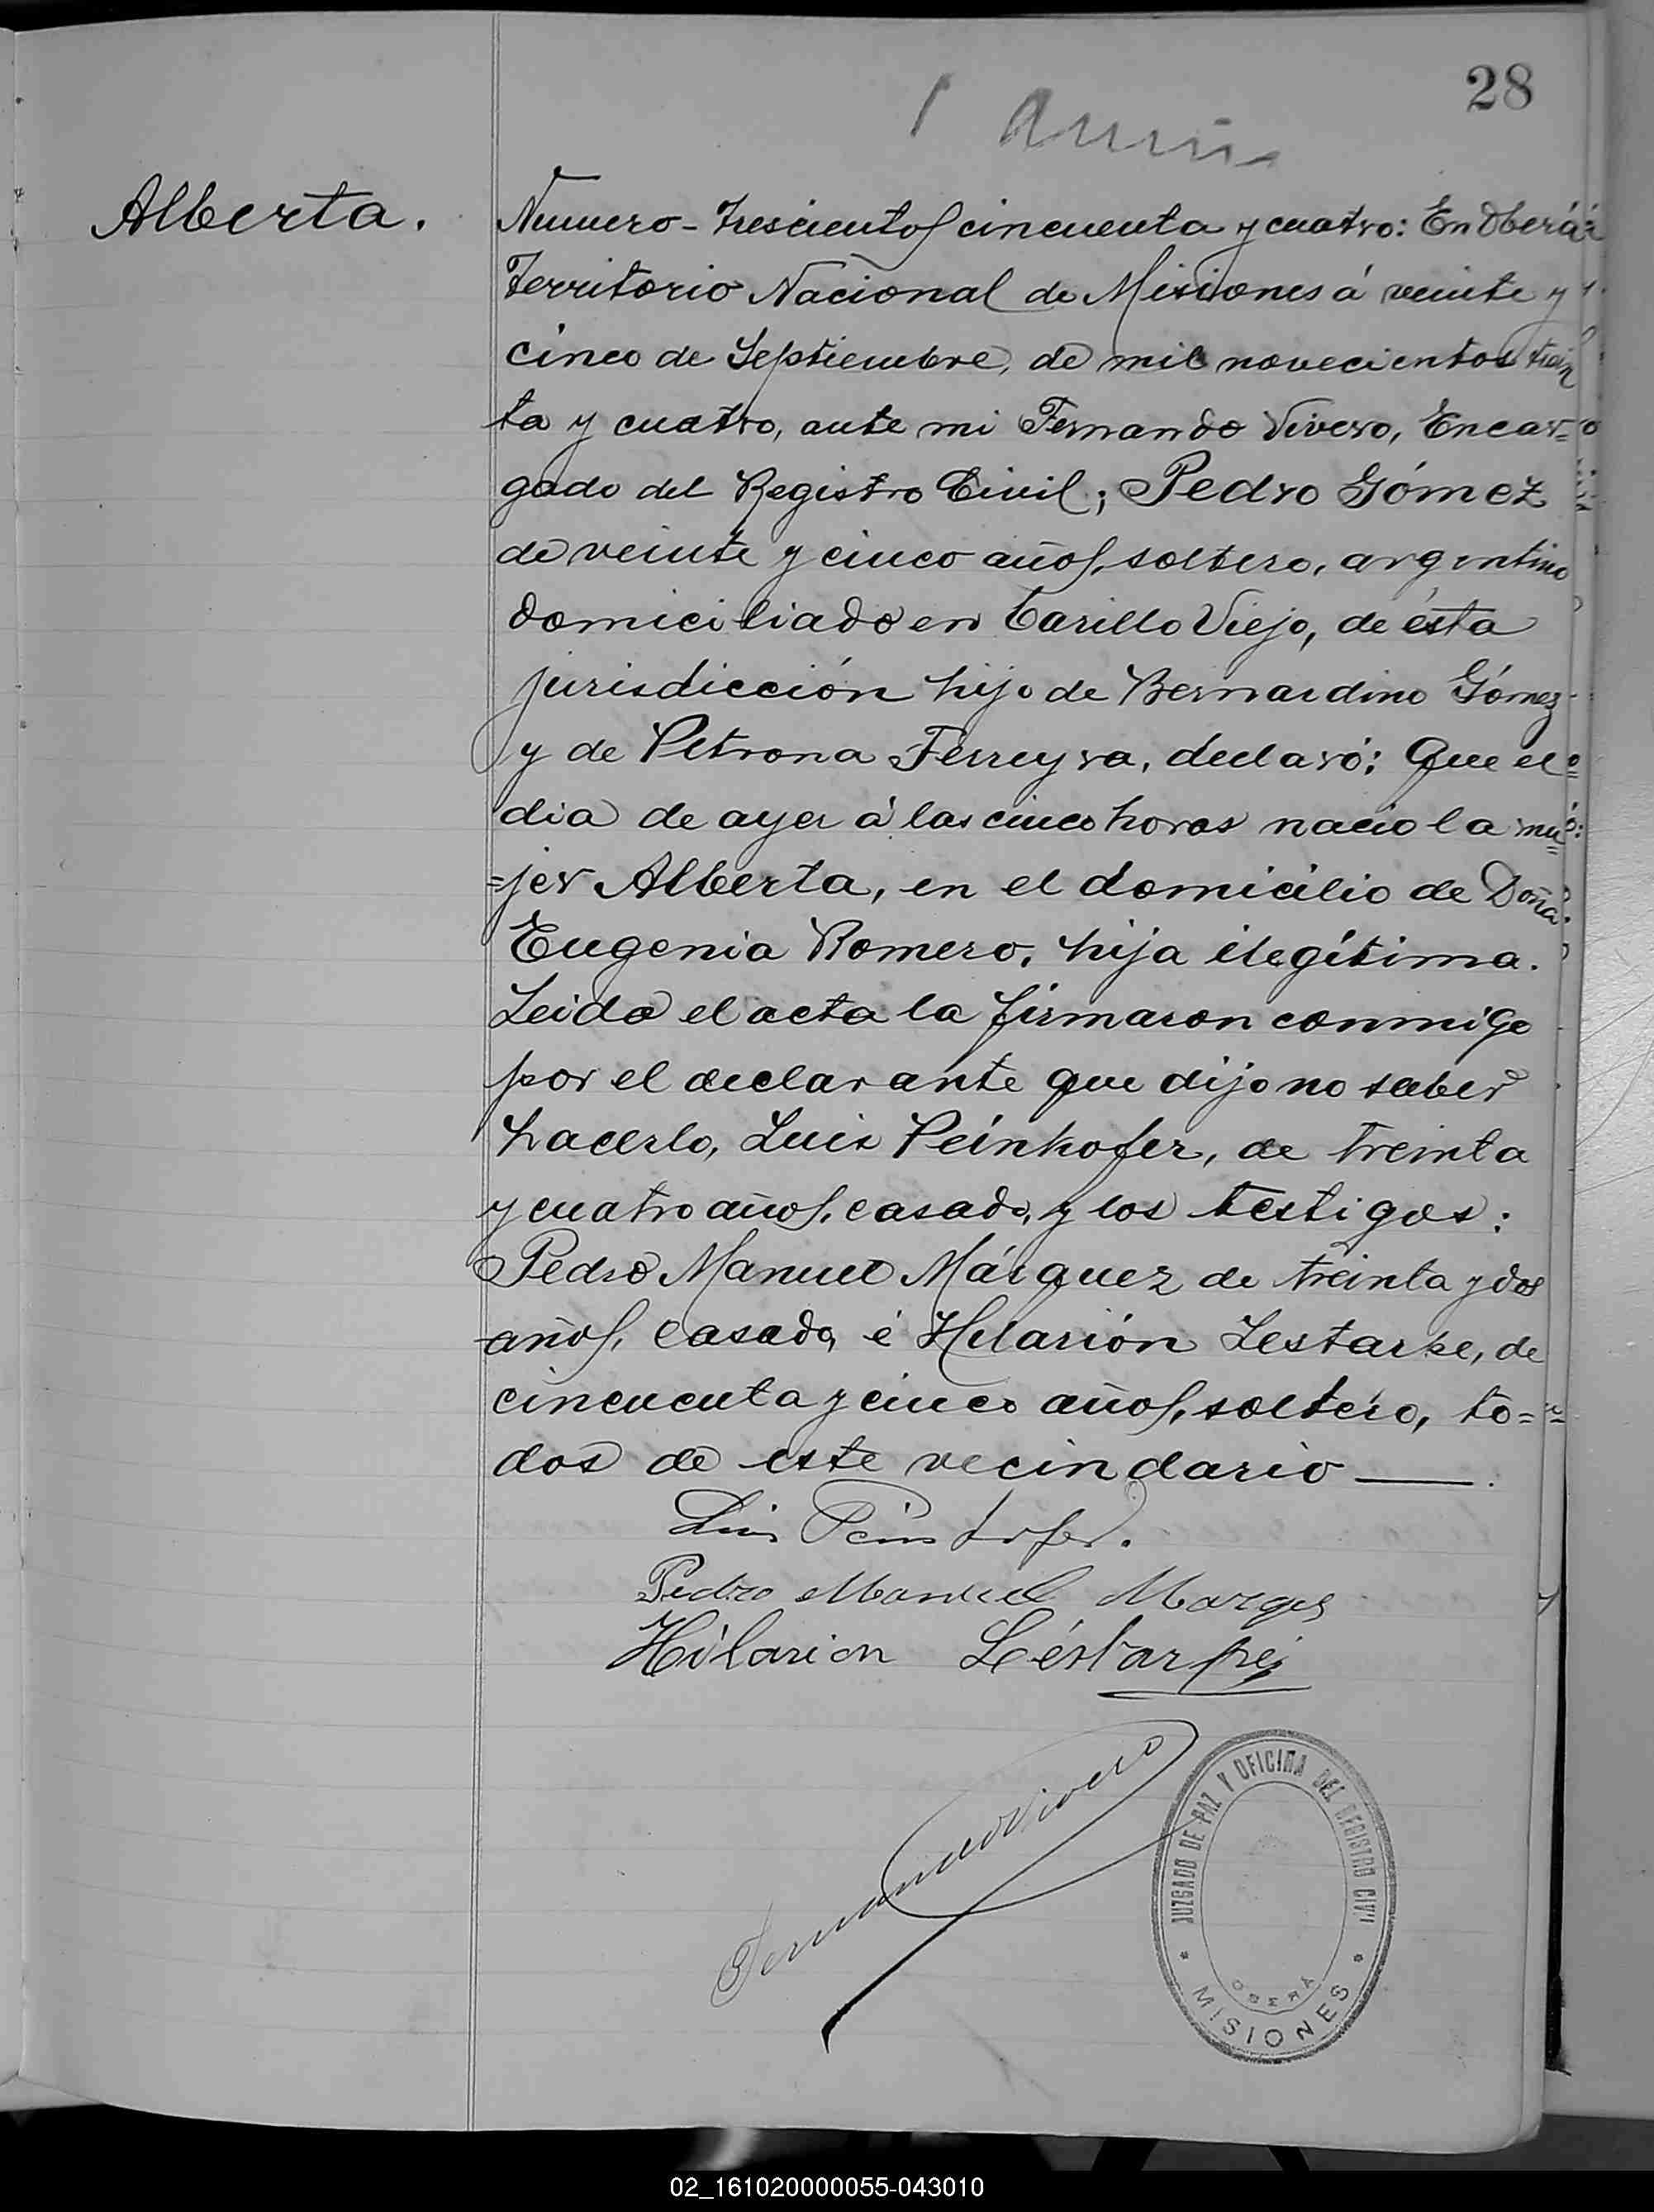 28
Alberta.
Numero-Trescientos cincuenta y cuatro: En Oberá
Territorio Nacional de Misiones á veinte y
cinco de Septiembre, de mil novecientos trein
ta y cuatro, ante mi Fernando Vivero, Encar=
gado del Registro Civil; Pedro Gómez
de veinte y cinco años, soltero, argentino
domiciliado en Carillo Viejo, de ésta
jurisdicción hijo de Bernardino Gómez
y de Petrona Ferreyra, declaró: Que el
dia de ayer á las cinco horas nacio la mu=
=jer Alberta, en el domicilio de Doña
Eugenia Romero, hija ilegítima.
Leida el acta la firmaron conmigo
por el declarante que dijo no saber
hacerlo, Luis Peinhofer, de treinta
y cuatro años, casado, y los testigos:
Pedro Manuel Márquez de treinta y dos
años, casado, é Hilarión Lestarpe, de
cincuenta y cinco años, soltero, to=
dos de este vecindario
Luis Peinhofer.
Pedro Manuel Marques
Hilarion Léstarpé
Fernando Vivero
JUZGADO DE PAZ Y OFICINA DEL REGISTRO CIVIL
OBERÁ
* MISIONES *
02_161020000055-043010